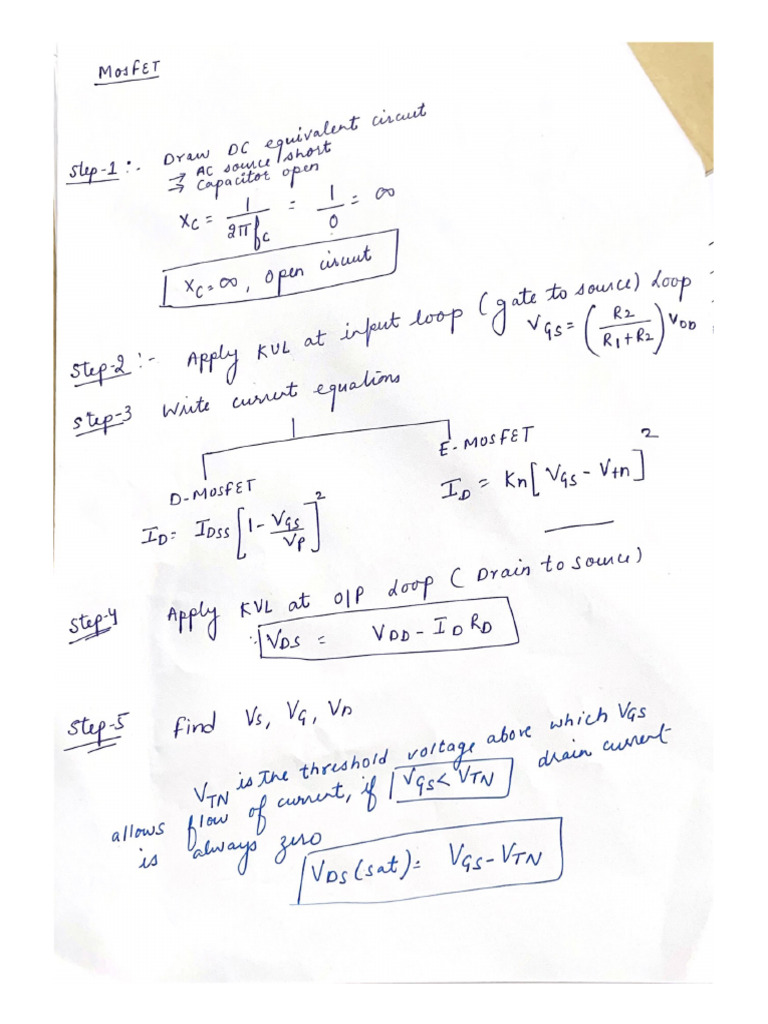 MosfET
Step-1 :- Draw DC equivalent circuit
→ AC source short
→ Capacitor open
Xc = 1/2πfc = 1/0 = ∞
Xc=∞, open circuit
Step-2 :- Apply KVL at input loop (gate to source) Loop
VGS = (R2/R1+R2) VDD
Step-3 Write current equations
D-MOSFET E-MOSFET
ID = IDSS [1 - VGS/VP]² ID = Kn [VGS - Vtn]²
Step-4 Apply KVL at O/P Loop (Drain to source)
∴ VDS = VDD - ID RD
Step-5 find VS, VG, VD
VTN is the threshold voltage above which VGS
allows flow of current, if VGS < VTN drain current
is always zero
VDS (sat) = VGS - VTN